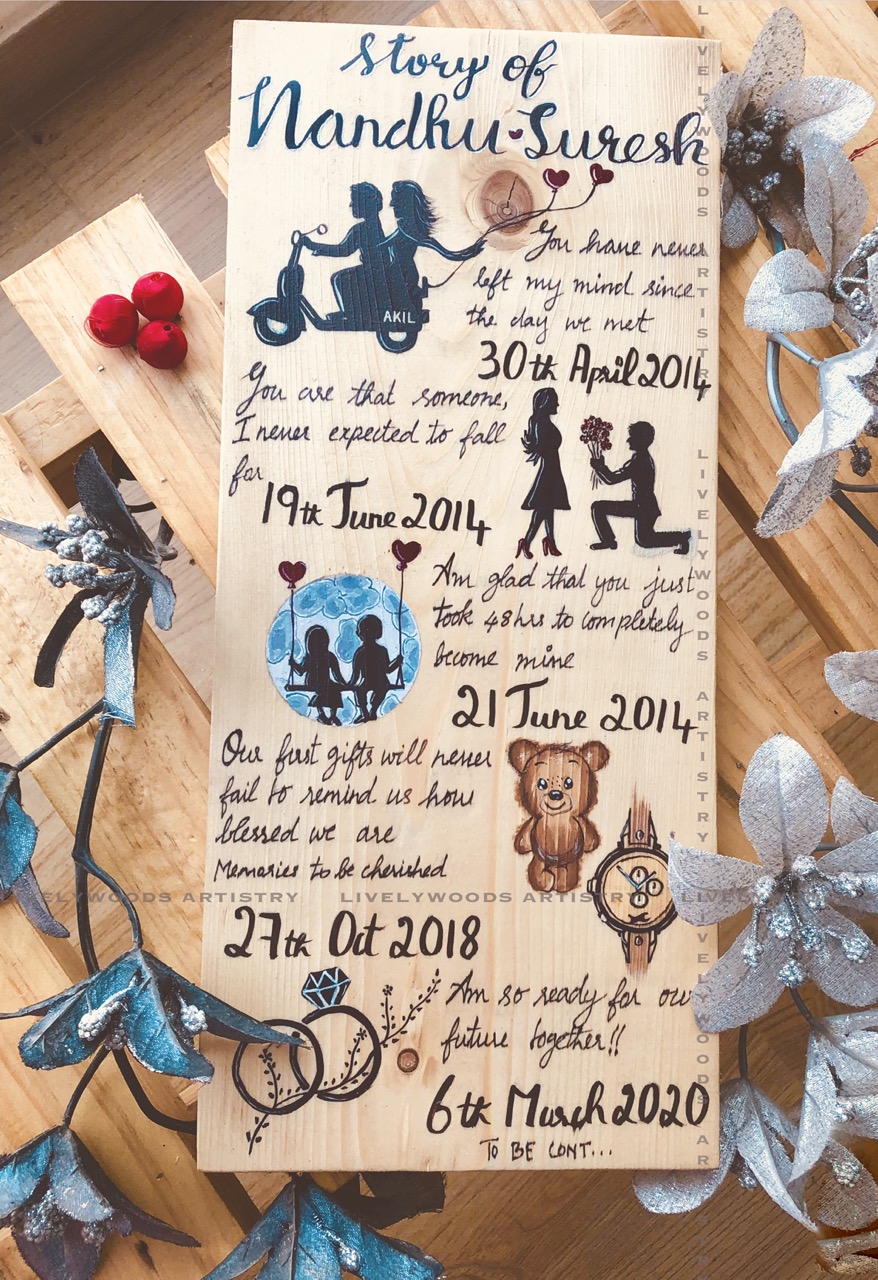 Story of
Nandhu Suresh
You have never
left my mind since
the day we met
AKIL
30th April 2014
You are that someone,
I never expected to fall
for
19th June 2014
Am glad that you just
took 48hrs to completely
become mine
21 June 2014
Our first gifts will never
fail to remind us how
blessed we are
Memories to be cherished
27th Oct 2018
Am so ready for our
future together!!
6th March 2020
TO BE CONT...
LIVELYWOODS ARTISTRY LIVELYWOODS ARTISTRY LIVELYWOODS AR
ELYWOODS ARTISTRY LIVELYWOODS ARTISTRY LIVE